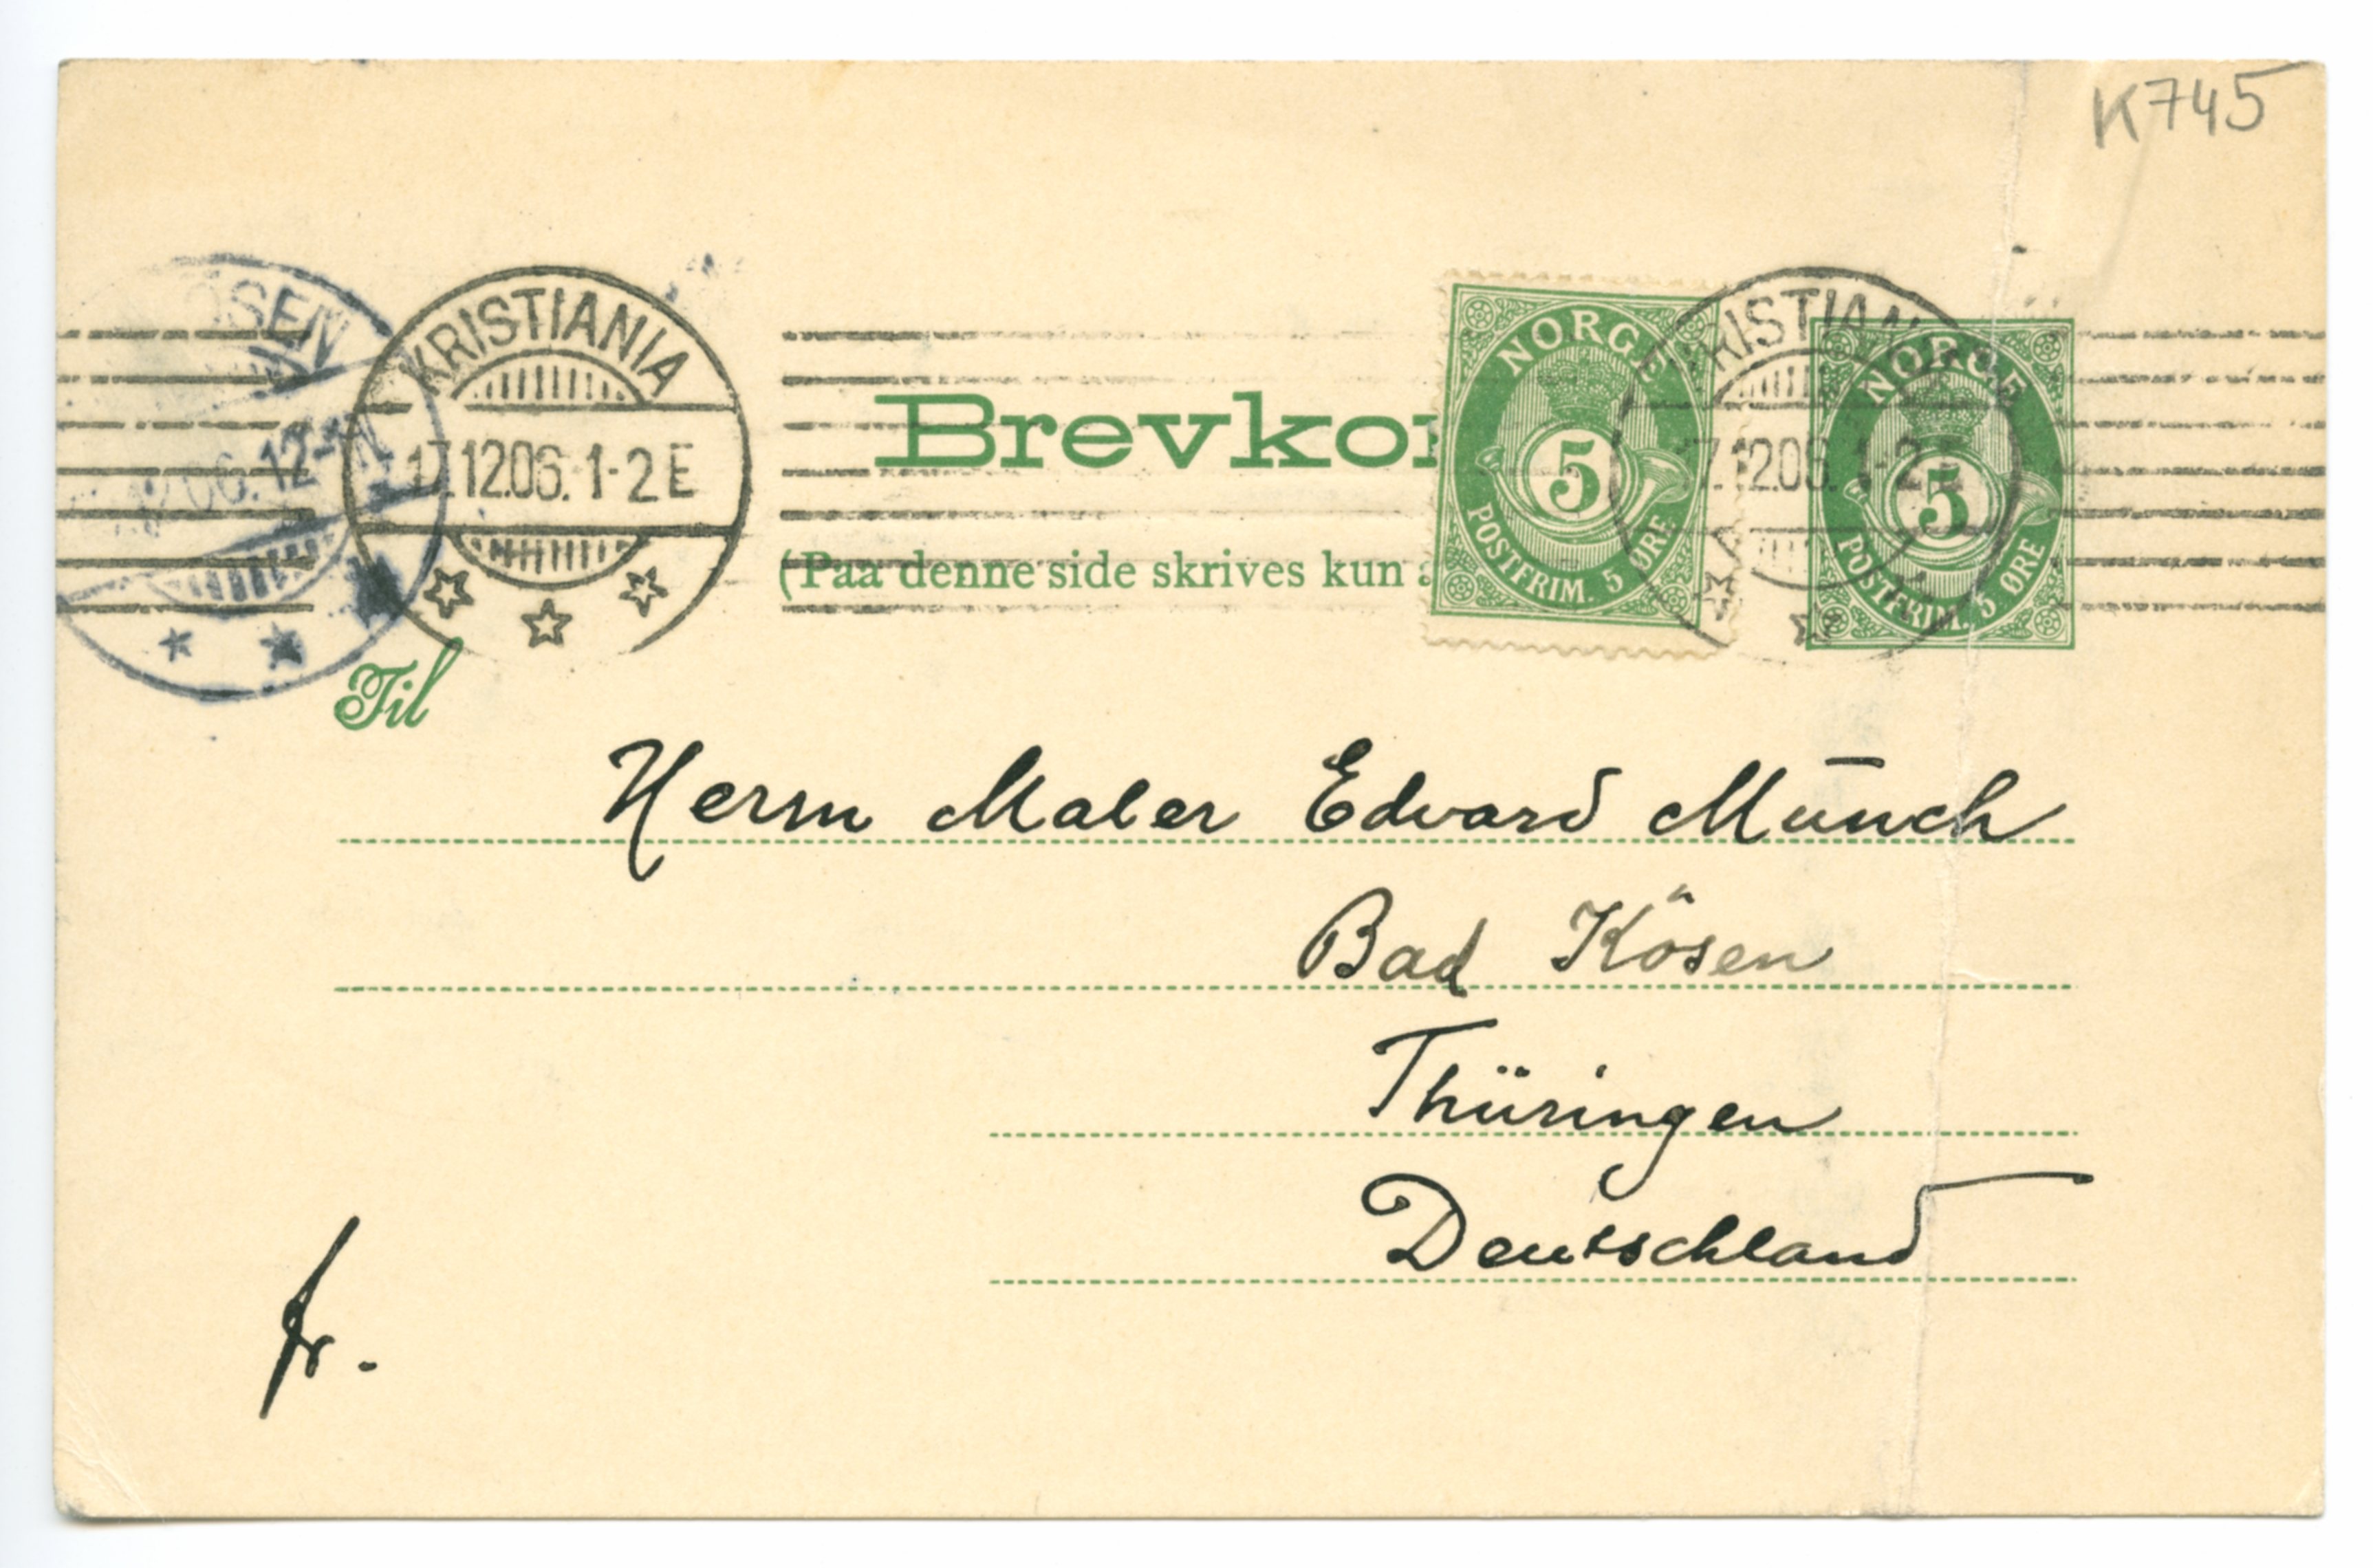 K745
KRISTIANIA
17.12.06. 1-2 E
ÖSEN
06. 12-
Brevkor
NORGE
5
POSTFRIM. 5 ØRE
KRISTIAN
17.12.06. 1-2 E
NORGE
5
POSTFRIM. 5 ØRE
(Paa denne side skrives kun a
Til
Herrn Maler Edvard Munch
Bad Kösen
Thüringen
Deutschland
fr.